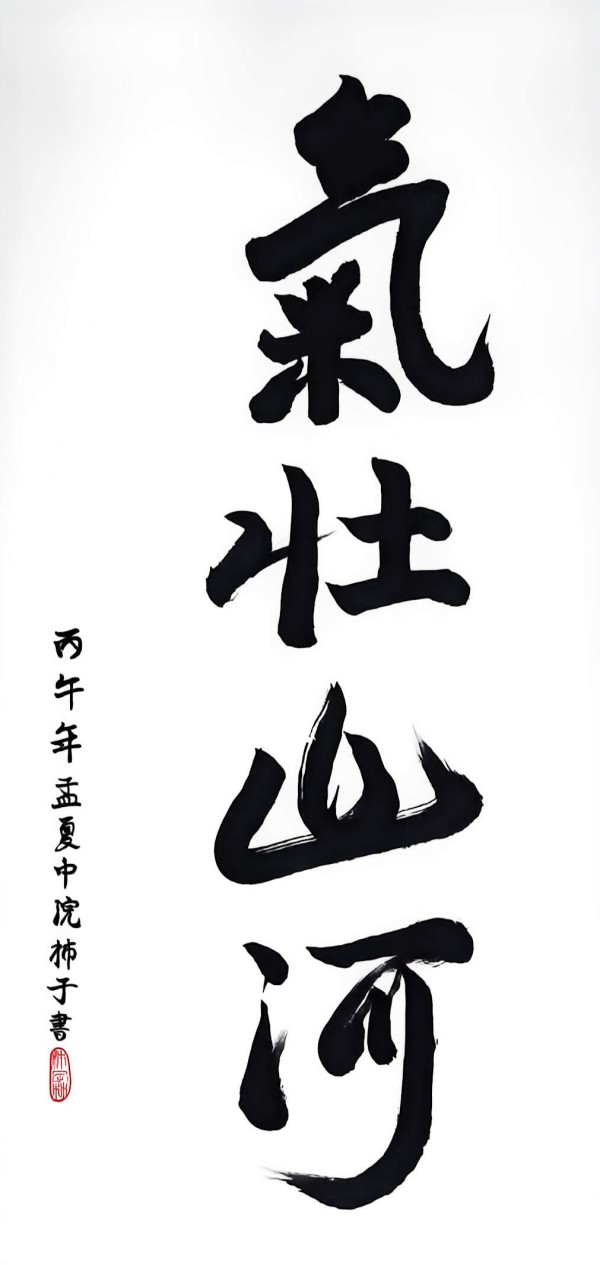 氣壯山河
丙午年孟夏中院柿子書